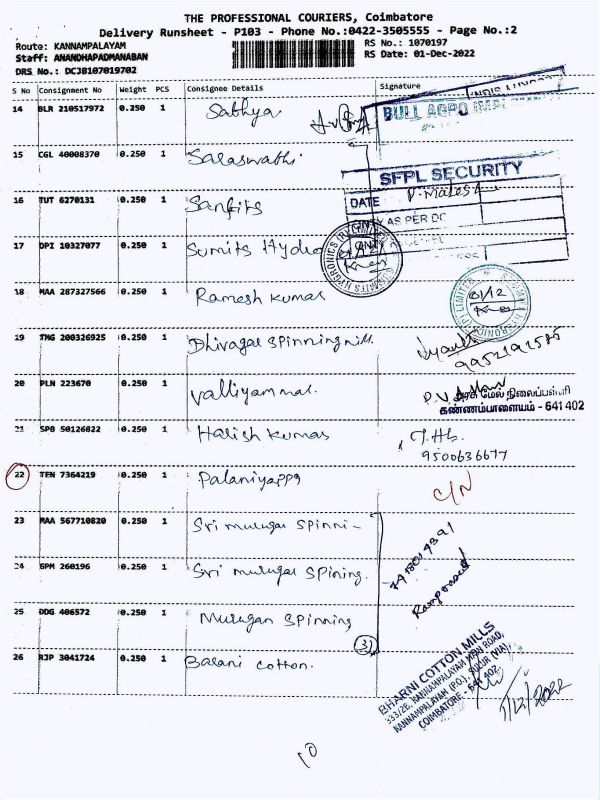 THE PROFESSIONAL COURIERS, Coimbatore
Delivery Runsheet - P103 - Phone No.:0422-3505555 - Page No.:2
Route: KANNAMPALAYAM
RS No.: 1070197
Staff: ANANDHAPADMANABAN
RS Date: 01-Dec-2022
DRS No.: DCJB107019702
S No Consignment No Weight PCS Consignee Details Signature
14 BLR 210517972 0.250 1 Sathya
BULL AGRO
15 CGL 40008370 0.250 1 Saraswathi
SFPL SECURITY
DATE
16 TUT 6270131 0.250 1 Sanfits
AS PER DC
17 DPI 10327077 0.250 1 Sumits Hydro
18 MAA 287327566 0.250 1 Ramesh Kumar
01/12
19 TMG 200326925 0.250 1 Dhivagar Spinning mill.
9952192585
20 PLN 223670 0.250 1 Valliyammal.
அரசு மேல் நிலைப்பள்ளி
கண்ணம்பாளையம் - 641 402
21 SPB 50126822 0.250 1 Harish Kumar
9500636677
22 TEN 7364219 0.250 1 Palaniyappa
C/N
23 MAA 567710820 0.250 1 Sri Murugar Spinni-
24 SPM 260196 0.250 1 Sri Murugar Spining.
25 DDG 406572 0.250 1 Murugan Spinning
3
26 RJP 3041724 0.250 1 Barani Cotton.
BHARNI COTTON MILLS
333/2B, KANNAMPALAYAM MAIN ROAD,
KANNAMPALAYAM (P.O.), SULUR (VIA)
COIMBATORE - 641 402
1/12/2022
10